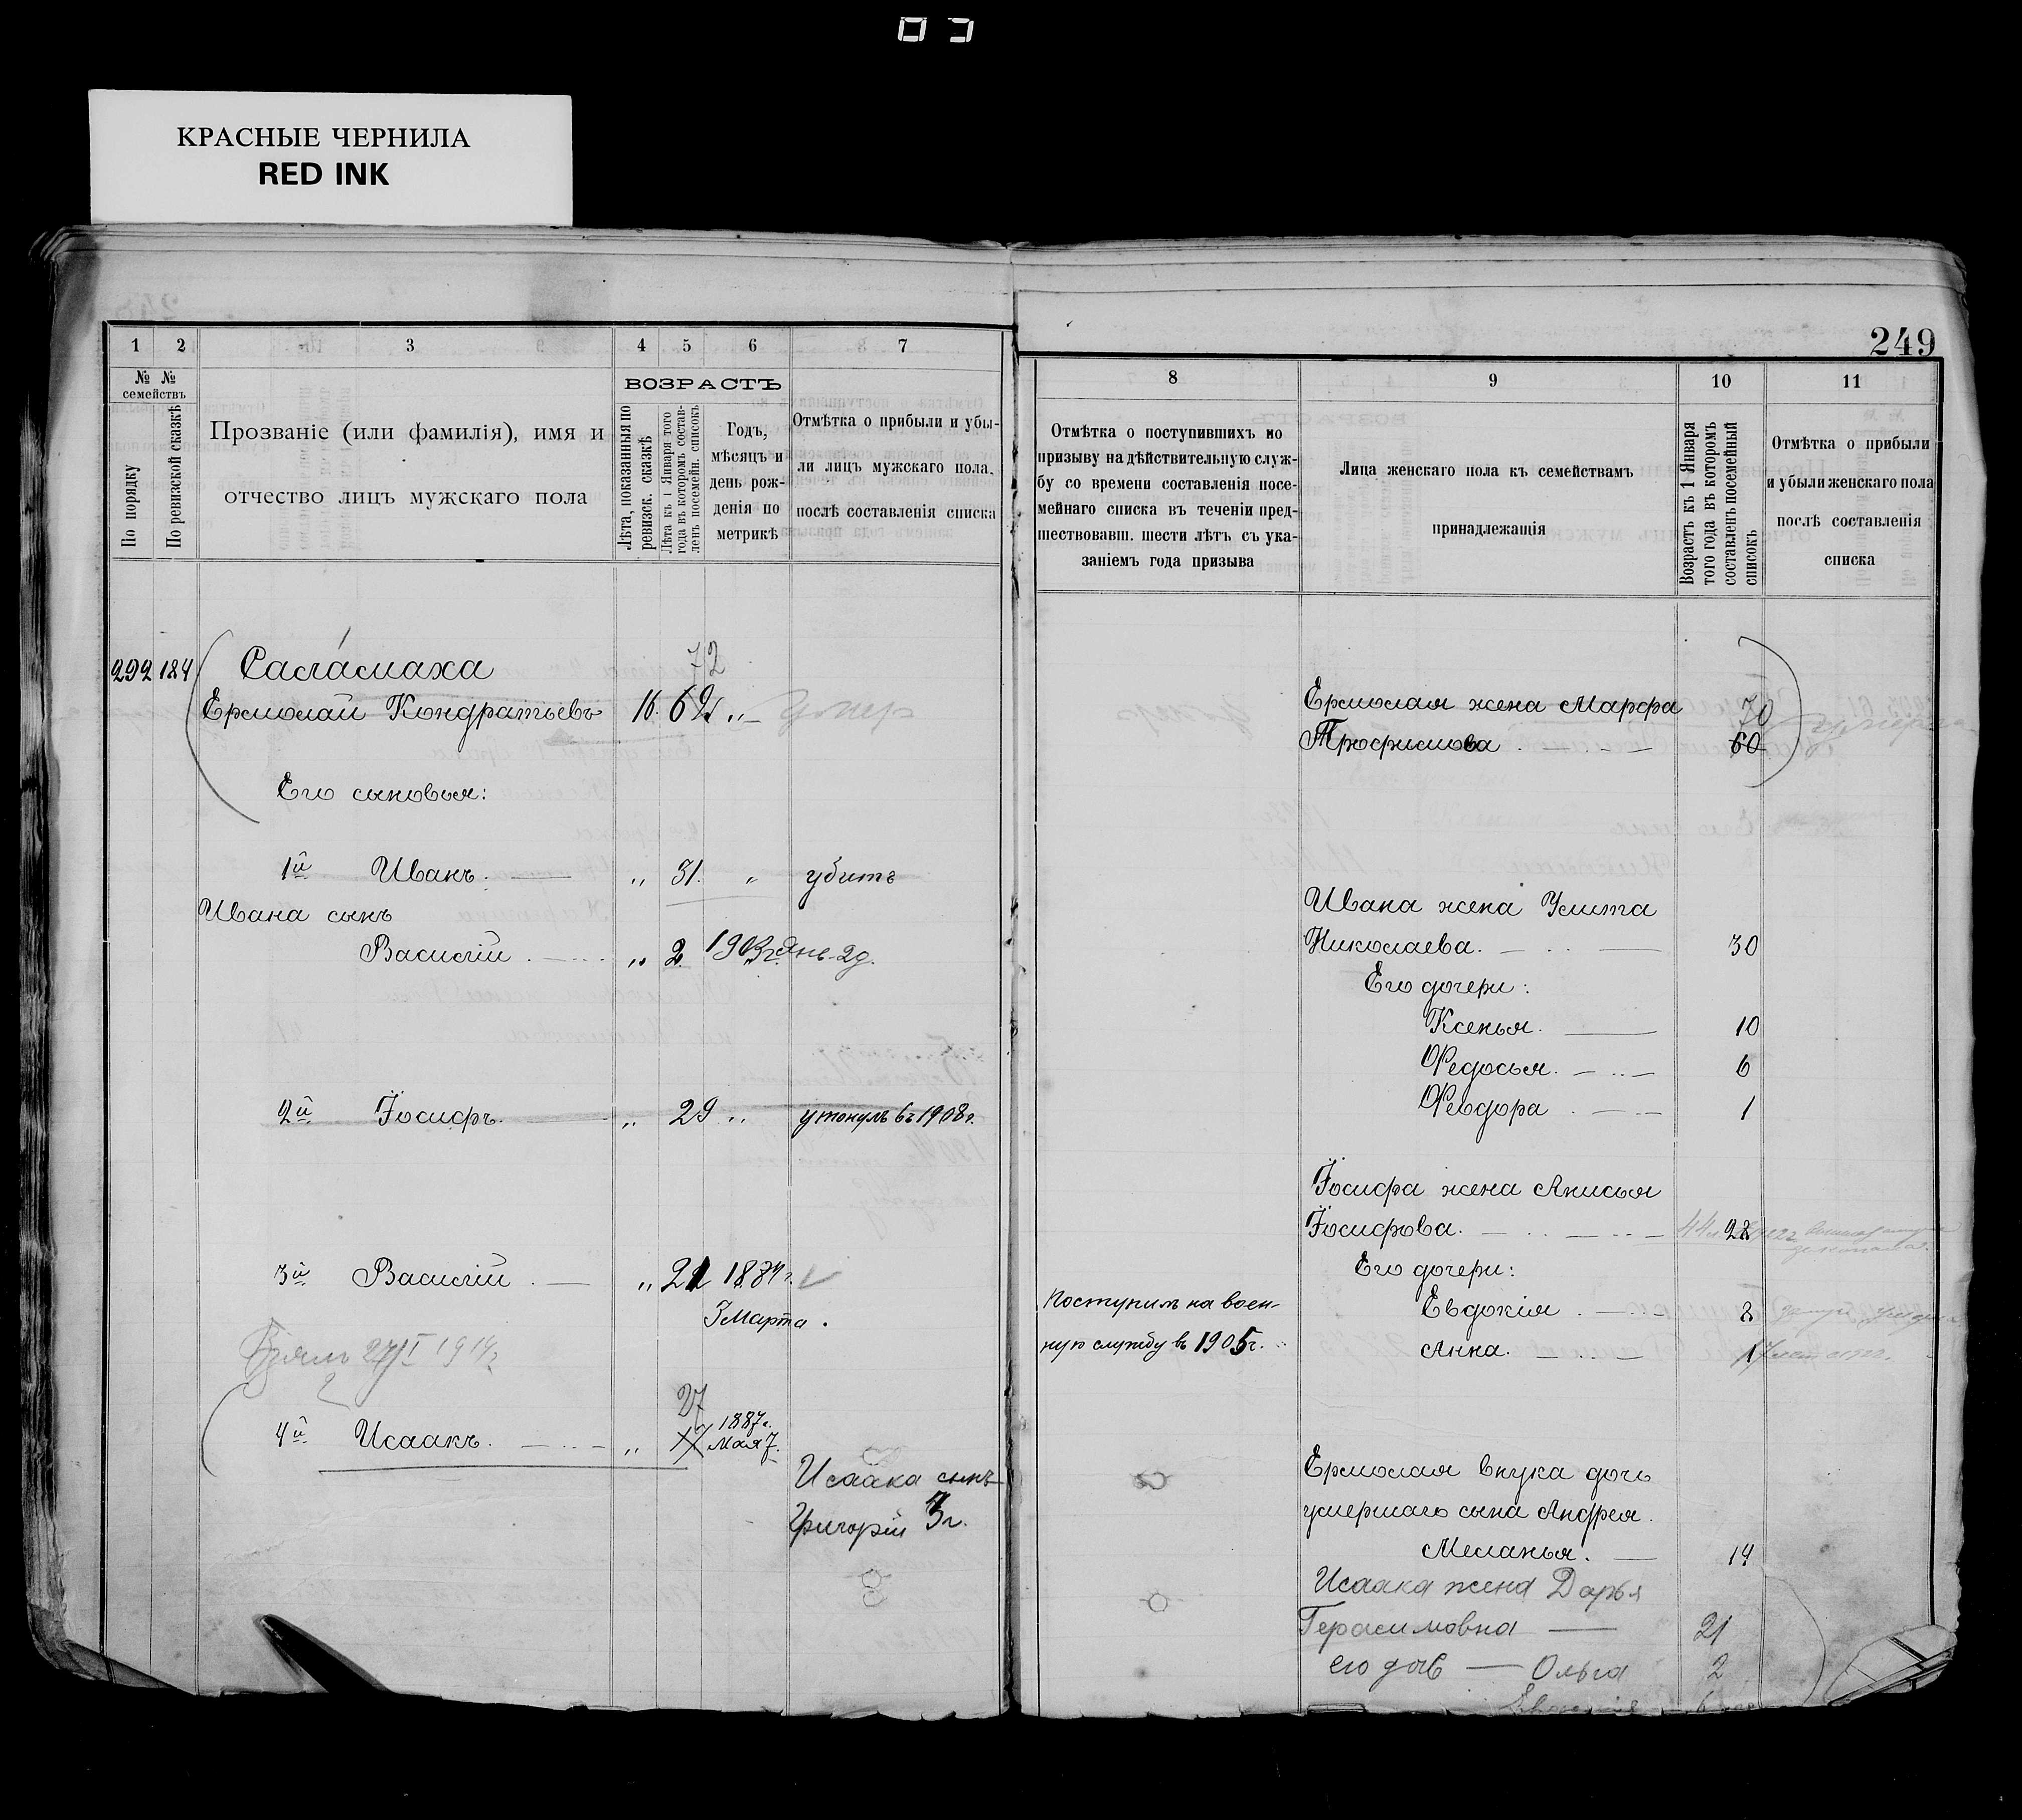 КРАСНЫЕ ЧЕРНИЛА
RED INK
249
1 2 3 4 5 6 7
№ № семействъ
По порядку
По ревизской сказкѣ
Прозваніе (или фамилія), имя и
отчество лицъ мужскаго пола
ВОЗРАСТЪ
Лѣта, показанныя по
ревизск. сказкѣ
Лѣта къ 1 Января того
года въ которомъ состав-
ленъ посемейн. списокъ
Годъ,
мѣсяцъ и
день рож-
денія по
метрикѣ
Отмѣтка о прибыли и убы-
ли лицъ мужскаго пола,
послѣ составленія списка
292 184
72
Ермолай Кондратьевъ 16 умер
Его сыновья:
1й Иванъ. " 31. " убитъ
Ивана сынъ
Василій " 2. 1903г.
2й Іосифъ. " 29 " утонулъ въ 1908г.
3й Василій " 21 1884г.
3 Марта.
1914г
27
1887г.
4й Исаакъ. " Мая 7.
Исаака сынъ
Григорій 3г.
8 9 10 11
Отмѣтка о поступившихъ по
призыву на дѣйствительную служ-
бу со времени составленія посе-
мейнаго списка въ теченіи пред-
шествовавш. шести лѣтъ съ ука-
заніемъ года призыва
Лица женскаго пола къ семействамъ
принадлежащія
Возрастъ къ 1 Января
того года въ которомъ
составленъ посемейный
списокъ
Отмѣтка о прибыли
и убыли женскаго пола
послѣ составленія
списка
Ермолая жена Марфа 70
Трофимова 60
Ивана жена Улита
Николаева. 30
Его дочери:
Ксенья. 10
Федосья. 6
Феодора 1
Іосифа жена Анисья
Іосифова. 28
Его дочери:
Поступилъ на воен-
ную службу въ 1905г.
Евдокія 8
Анна.
Ермолая внука дочь
умершаго сына Андрея.
Меланья. 14
Исаака жена Дарья
Герасимовна 21
его дочь — Ольга 2